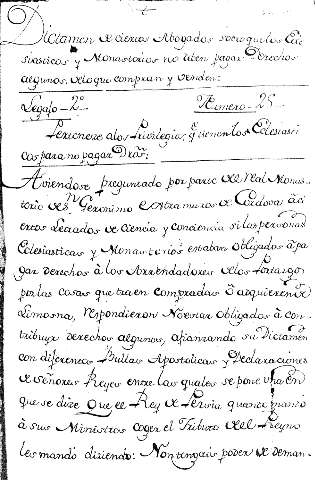 Dictamen de ciertos Abogados sobre que los Ecle-
siasticos y Monasterios no deben pagar Derechos
algunos de lo que compran y venden:
Legajo - 2º Numero - 25
Pertenece a los Privilegios q tienen los Eclesiasti
cos para no pagar Dros:
Aviendose preguntado por parte de el Real Monas-
terio de Sn Geronimo extramuros de Cordova à ci
ertos Letrados de Ciencia y Conciencia si las personas
Eclesiasticas y Monasterios estaban obligados à pa-
gar derechos à los Arrendadores de los Portazgos
por las cosas que traen compradas ò adquieren de
Limosna, respondieron No estar obligados à con-
tribuir derechos algunos, afianzando su Dictamen
con diferentes Bullas Apostolicas y Declaraciones
de señores Reyes entre las quales se pone una en
que se dize Que el Rey de Persia quando mandò
à sus Ministros coger el Tributo de el Reyno
les mandò diziendo: Non tengais poder de deman-